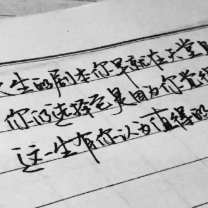 人生的剧本你早就在天堂
你仍选择它是因为你觉得
这一生有你认为值得的